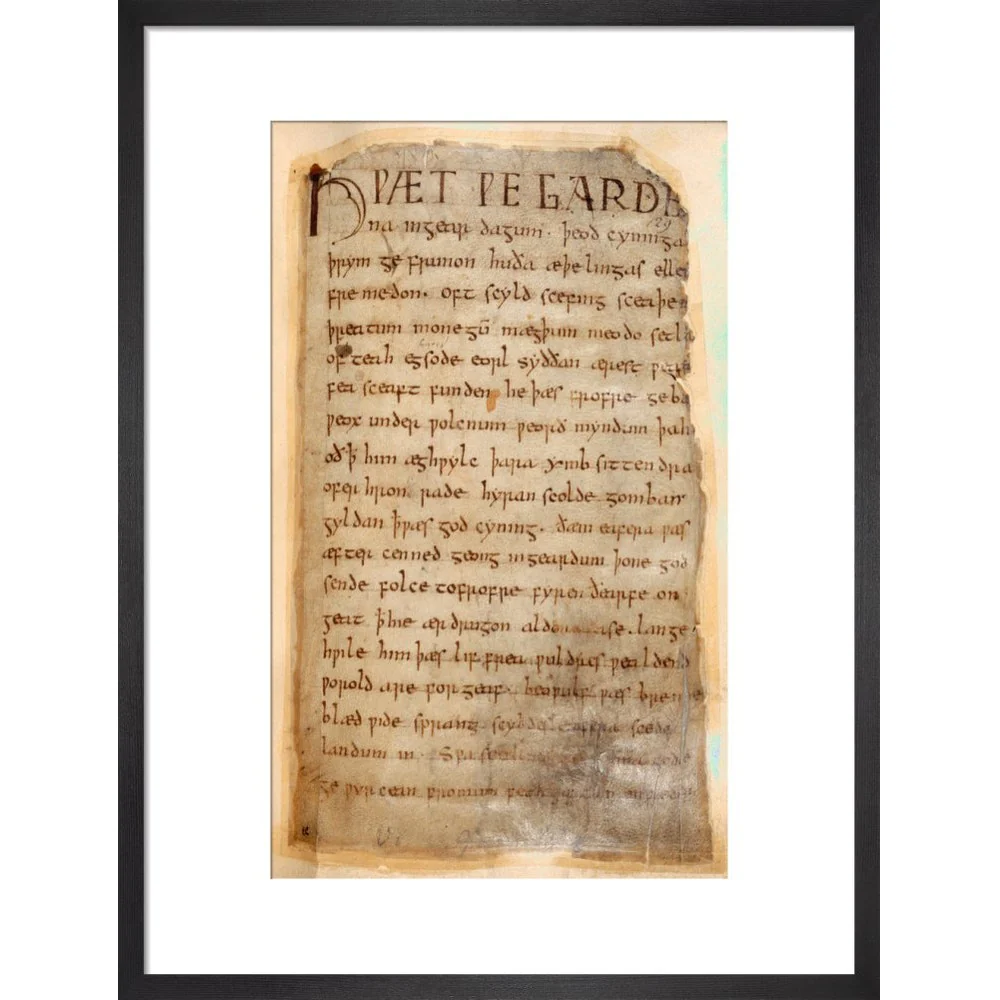 HǷÆT ǷE GARDE
na in gear dagum. þeod cyninga
þrym ge frunon huða æþelingas elle
fremedon. oft scyld scefing sceaþe
þreatum monegū mægþum meodo setla
of teah egsode eorl syððan ærest ƿear
fea sceaft funden he þæs frofre geba
ƿeox under ƿolcnum ƿeorð myndum þah
oð ꝥ him æghƿylc þara ymb sittendra
ofer hron rade hyran scolde gomban
gyldan ꝥ ƿæs god cyning. ðæm eafera ƿæs
æfter cenned geong in geardum þone god
sende folce tofrofre fyren ðearfe on
geat ꝥ hie ær drugon aldor ase. lange
hƿile him þæs lif frea ƿuldres ƿealdend
ƿorold are for geaf. beoƿulf ƿæs breme
blæd ƿide sprang scyldes eafera scede
landum in. Sƿa sceal guma gode
ge ƿyrcean fromum feoh giftum